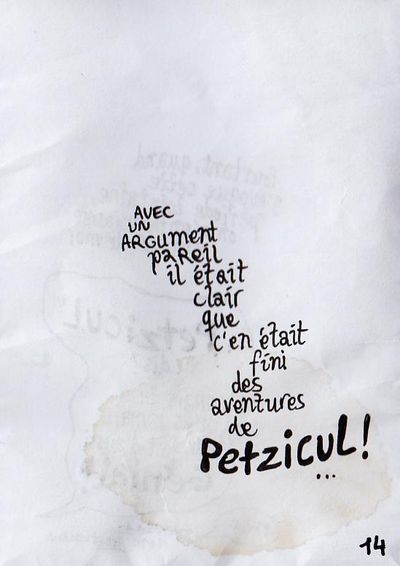 AVEC
UN
ARGUMENT
PAREIL
il était
clair
que
c'en était
fini
des
aventures
de
Petzicul!
...
14